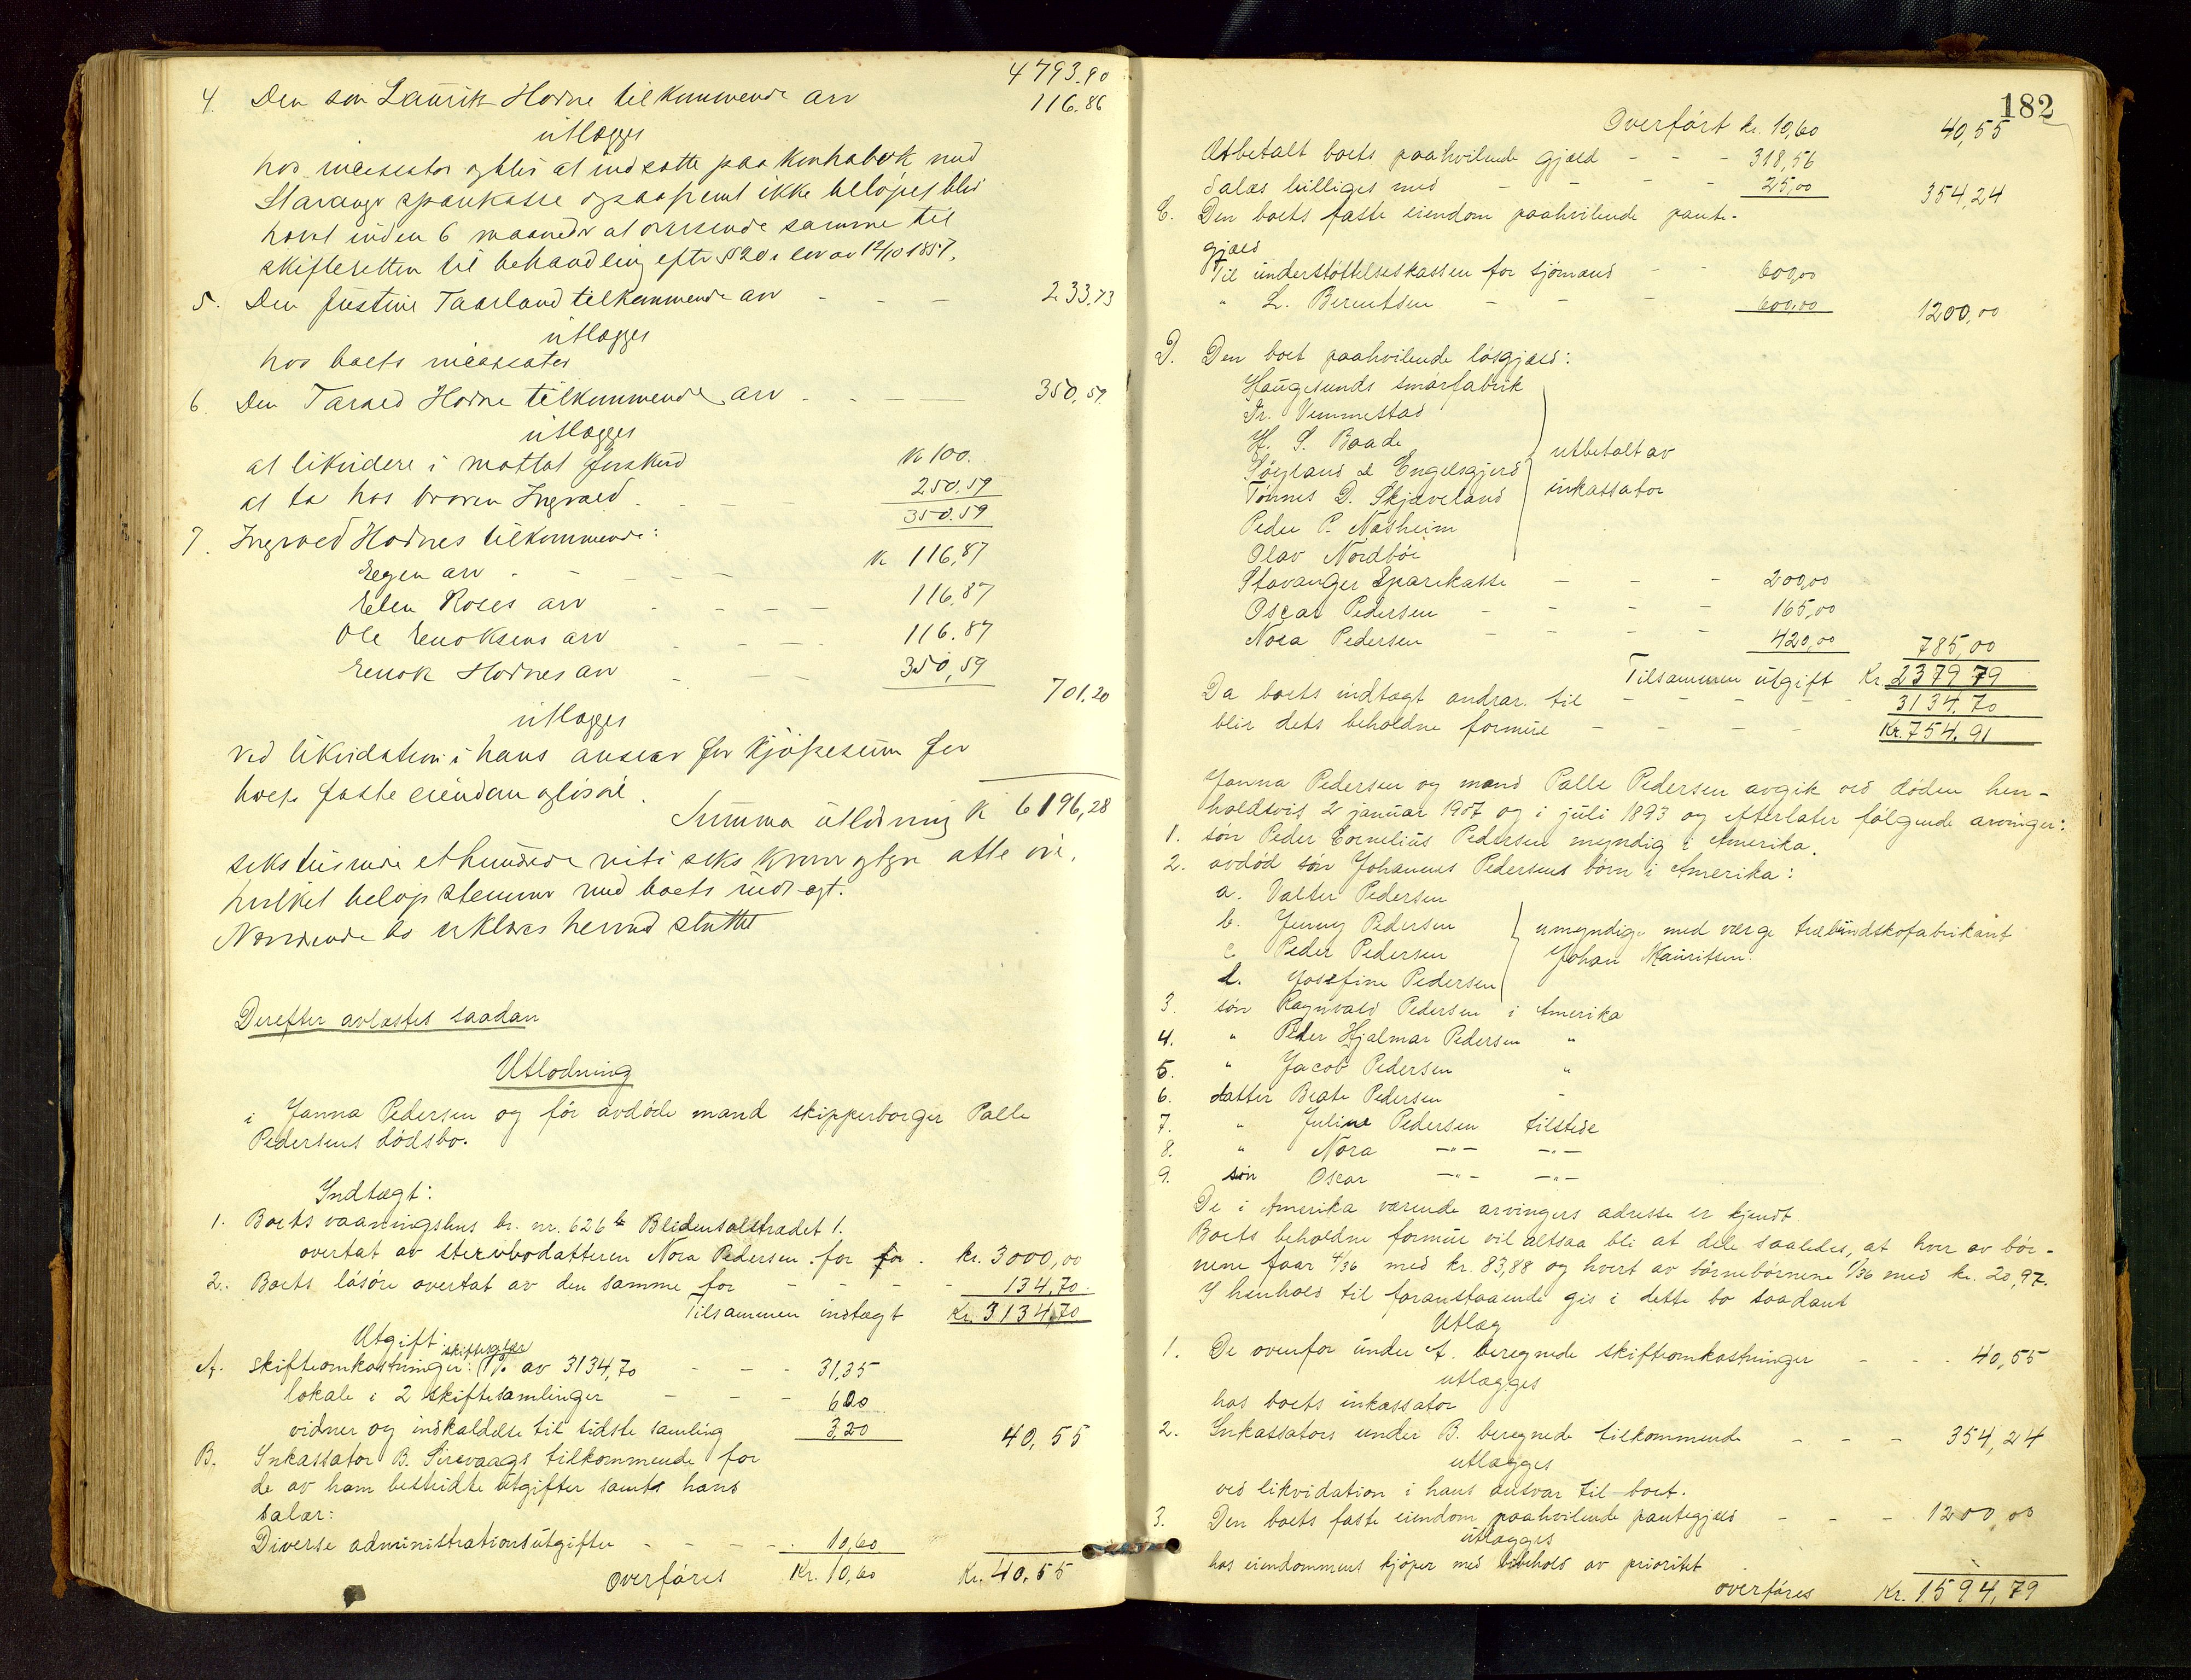 4793.90
4. Den søn Laurits Hodne tilkommende arv 116.86
utlægges
hos incassator og blir at indsætte paa kontrabok med
Stavanger sparekasse og saafremt ikke beløpet blir
hævet inden 6 maaneder at oversende samme til
skifteretten til behandling efter § 20 i lov av 12/10 1857.
5. Den Justine Taarland tilkommende arv - - - 233,73
utlægges
hos boets incassator
6. Den Tarald Hodne tilkommende arv - - - 350,59
utlægges
at likvidere i mottat forskud K 100.
at ta hos broren Ingvald - - - 250.59
350.59
7. Ingvald Hodnes tilkommende:
Egen arv - - - - K 116,87
Elen Roses arv - - - - 116,87
Ole Enoksens arv - - - 116.87
Enok Hodnes arv - - - 350,59
701.20
utlægges
ved likvidation i hans ansvar for kjøpesum for
boets faste eiendom og løsøre.
Summa utlodning K 6196,28
seks tusinde et hundrede nitti seks kroner og tyve otte øre,
hvilket beløp stemmer med boets indtægt.
Nærværende bo erklæres hermed sluttet
Derefter avlæstes saadan
Utlodning
i Janna Pedersen og før avdøde mand skipperborger Palle
Pedersens dødsbo.
Indtægt:
1. Boets vaaningshus br. nr. 626 b Blidensolstrædet 1.
overtat av stervbodatteren Nora Pedersen for for . kr. 3000,00
2. Boets løsøre overtat av den samme for - - - - 134,70.
Tilsammen indtægt Kr. 3134,70
Utgift:
skifteavgift
A. Skifteomkostninger: (1% av 3134,70 - - - 31,35
lokale i 2 skiftesamlinger - - - 6.00
vidner og indkaldelse til sidste samling 3,20 40,55
B. Inkassator B. Sirevaags tilkommende for
de av ham bestridte utgifter samt hans
salær:
Diverse administrationsutgifter - - - - 10,60
Overføres Kr. 10,60 Kr. 40,55
182
Overført kr. 10,60 40,55
Utbetalt boets paahvilende gjæld - - - 318,56
Salær billiges med - - - - 25,00 354,24
C. Den boets faste eiendom paahvilende pante-
gjæld
Til understøttelseskassen for sjømænd - - 600,00
" L. Berentsen - - - 600,00 1200,00
D. Den boet paahvilende løsgjæld:
Haugesunds smørfabrik
Fr. Vemmestad
H. S. Baade
Søyland & Engelsgjerd utbetalt av
Tønnes D. Skjæveland inkassator
Peder P. Næsheim
Olav Nordbøe
Stavanger Sparekasse - - - 200,00
Oscar Pedersen - - - - 165,00
Nora Pedersen - - - - 420,00 785,00
Tilsammen utgift Kr 2379 79
Da boets indtægt andrar til - - - - - 3134.70
blir dets beholdne formue - - - - Kr. 754.91
Janna Pedersen og mand Palle Pedersen avgik ved døden hen-
holdsvis 2 januar 1907 og i juli 1893 og efterlater følgende arvinger:
1. søn Peder Cornelius Pedersen myndig i Amerika.
2. avdød søn Johannes Pedersens børn i Amerika:
a. Valter Pedersen
b. Jenny Pedersen umyndige med værge træbundskofabrikant
c. Peder Pedersen Johan Mauritsen.
d. Josefine Pedersen
3. søn Ragnvald Pedersen i Amerika
4. " Peder Hjalmar Pedersen "
5. " Jacob Pedersen "
6. datter Beate Pedersen "
7. " Juline Pedersen tilstede
8. " Nora —"— —"—
9. søn Oscar —"— —"—
De i Amerika værende arvingers adresse er kjendt.
Boets beholdne formue vil altsaa bli at dele saaledes, at hver av bør-
nene faar 4/36 med kr. 83,88 og hvert av børnebørnene 1/36 med kr. 20,97.
I henhold til foranstaaende gis i dette bo saadant
Utlæg
1. De ovenfor under A. beregnede skifteomkostninger - - - 40,55
utlægges
hos boets inkassator
2. Inkassators under B. beregnede tilkommende - - - 354,24
utlægges
ved likvidation i hans ansvar til boet.
3. Den boets faste eiendom paahvilende pantegjæld - - - 1200,00
utlægges
hos eiendommens kjøper med bibehold av prioritet
overføres Kr. 1594,79